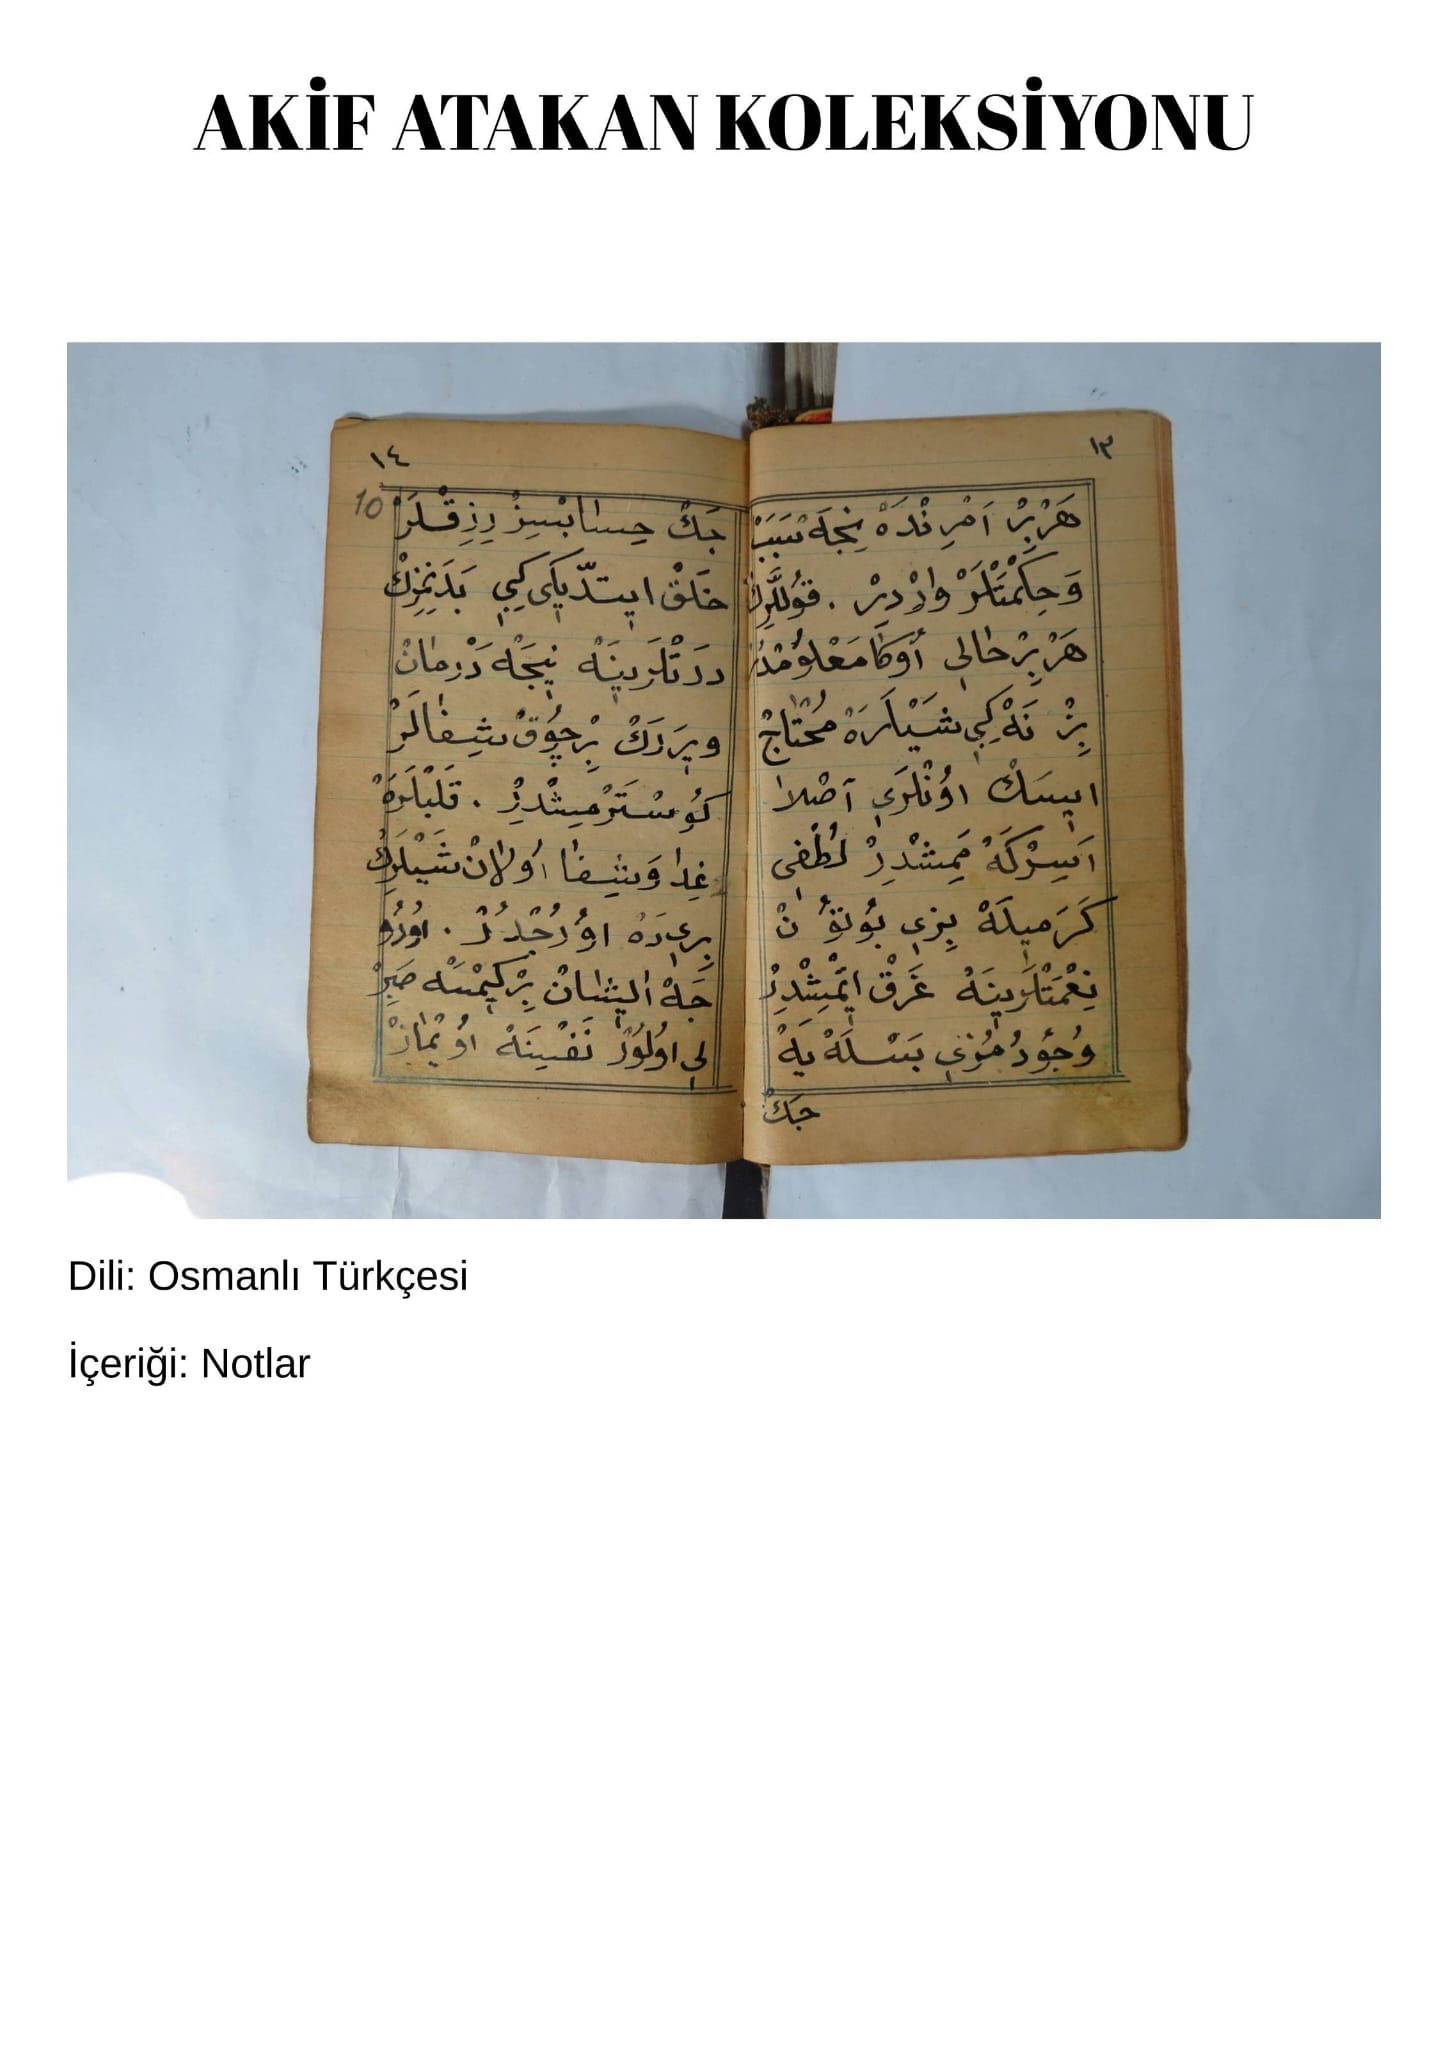 AKİF ATAKAN KOLEKSİYONU
١٣
هَرْ بِرْ اَمْرِنْدَهْ نِيجَهْ سَبَبْ
وَحِكْمَتْلَرْ وَارْدِرْ . قُوللَرِڭ
هَرْ بِرْ حَالِي أُوڭَا مَعْلُومْدُرْ
بِزْ نَهْ كِبِي شَيْلَرَهْ مُحْتَاجْ
اِيسَكْ اُونْلَرِي آصْلَا
اَسِيرْكَهْ مَمِشْدِرْ لُطْفِي
كَرَمِيلَهْ بِزِي بُوتُونْ
نِعْمَتْلَرِينَهْ غَرْقْ اِتْمِشْدِرْ
وُجُودُمُزِي بَسْلَهْ يَهْ
جَكْ
١٤
10
جَكْ حِسَابْسِزْ رِزِقْلَرْ
خَلَقْ اِيتْدِيكِي كِبِي بَدَنِمِزِڭْ
دَرْتْلَرِينَهْ نِيجَهْ دَرْمَانْ
وِيرَرَكْ بِرْچُوقْ شِفَالَرْ
كُوسْتَرْمِيشْدِرْ . قَلْبْلَرَهْ
غِدَا وَشِفَا اُولَانْ شَيْلَرِڭْ
بِرِي دَهْ اُورُجْدُرْ . اُورُو
جَهْ اَلِيشَانْ بِرْ كِيمْسَهْ صَبِرْ
لِي اُولُورْ نَفْسِينَهْ اُويْمَازْ
Dili: Osmanlı Türkçesi
İçeriği: Notlar